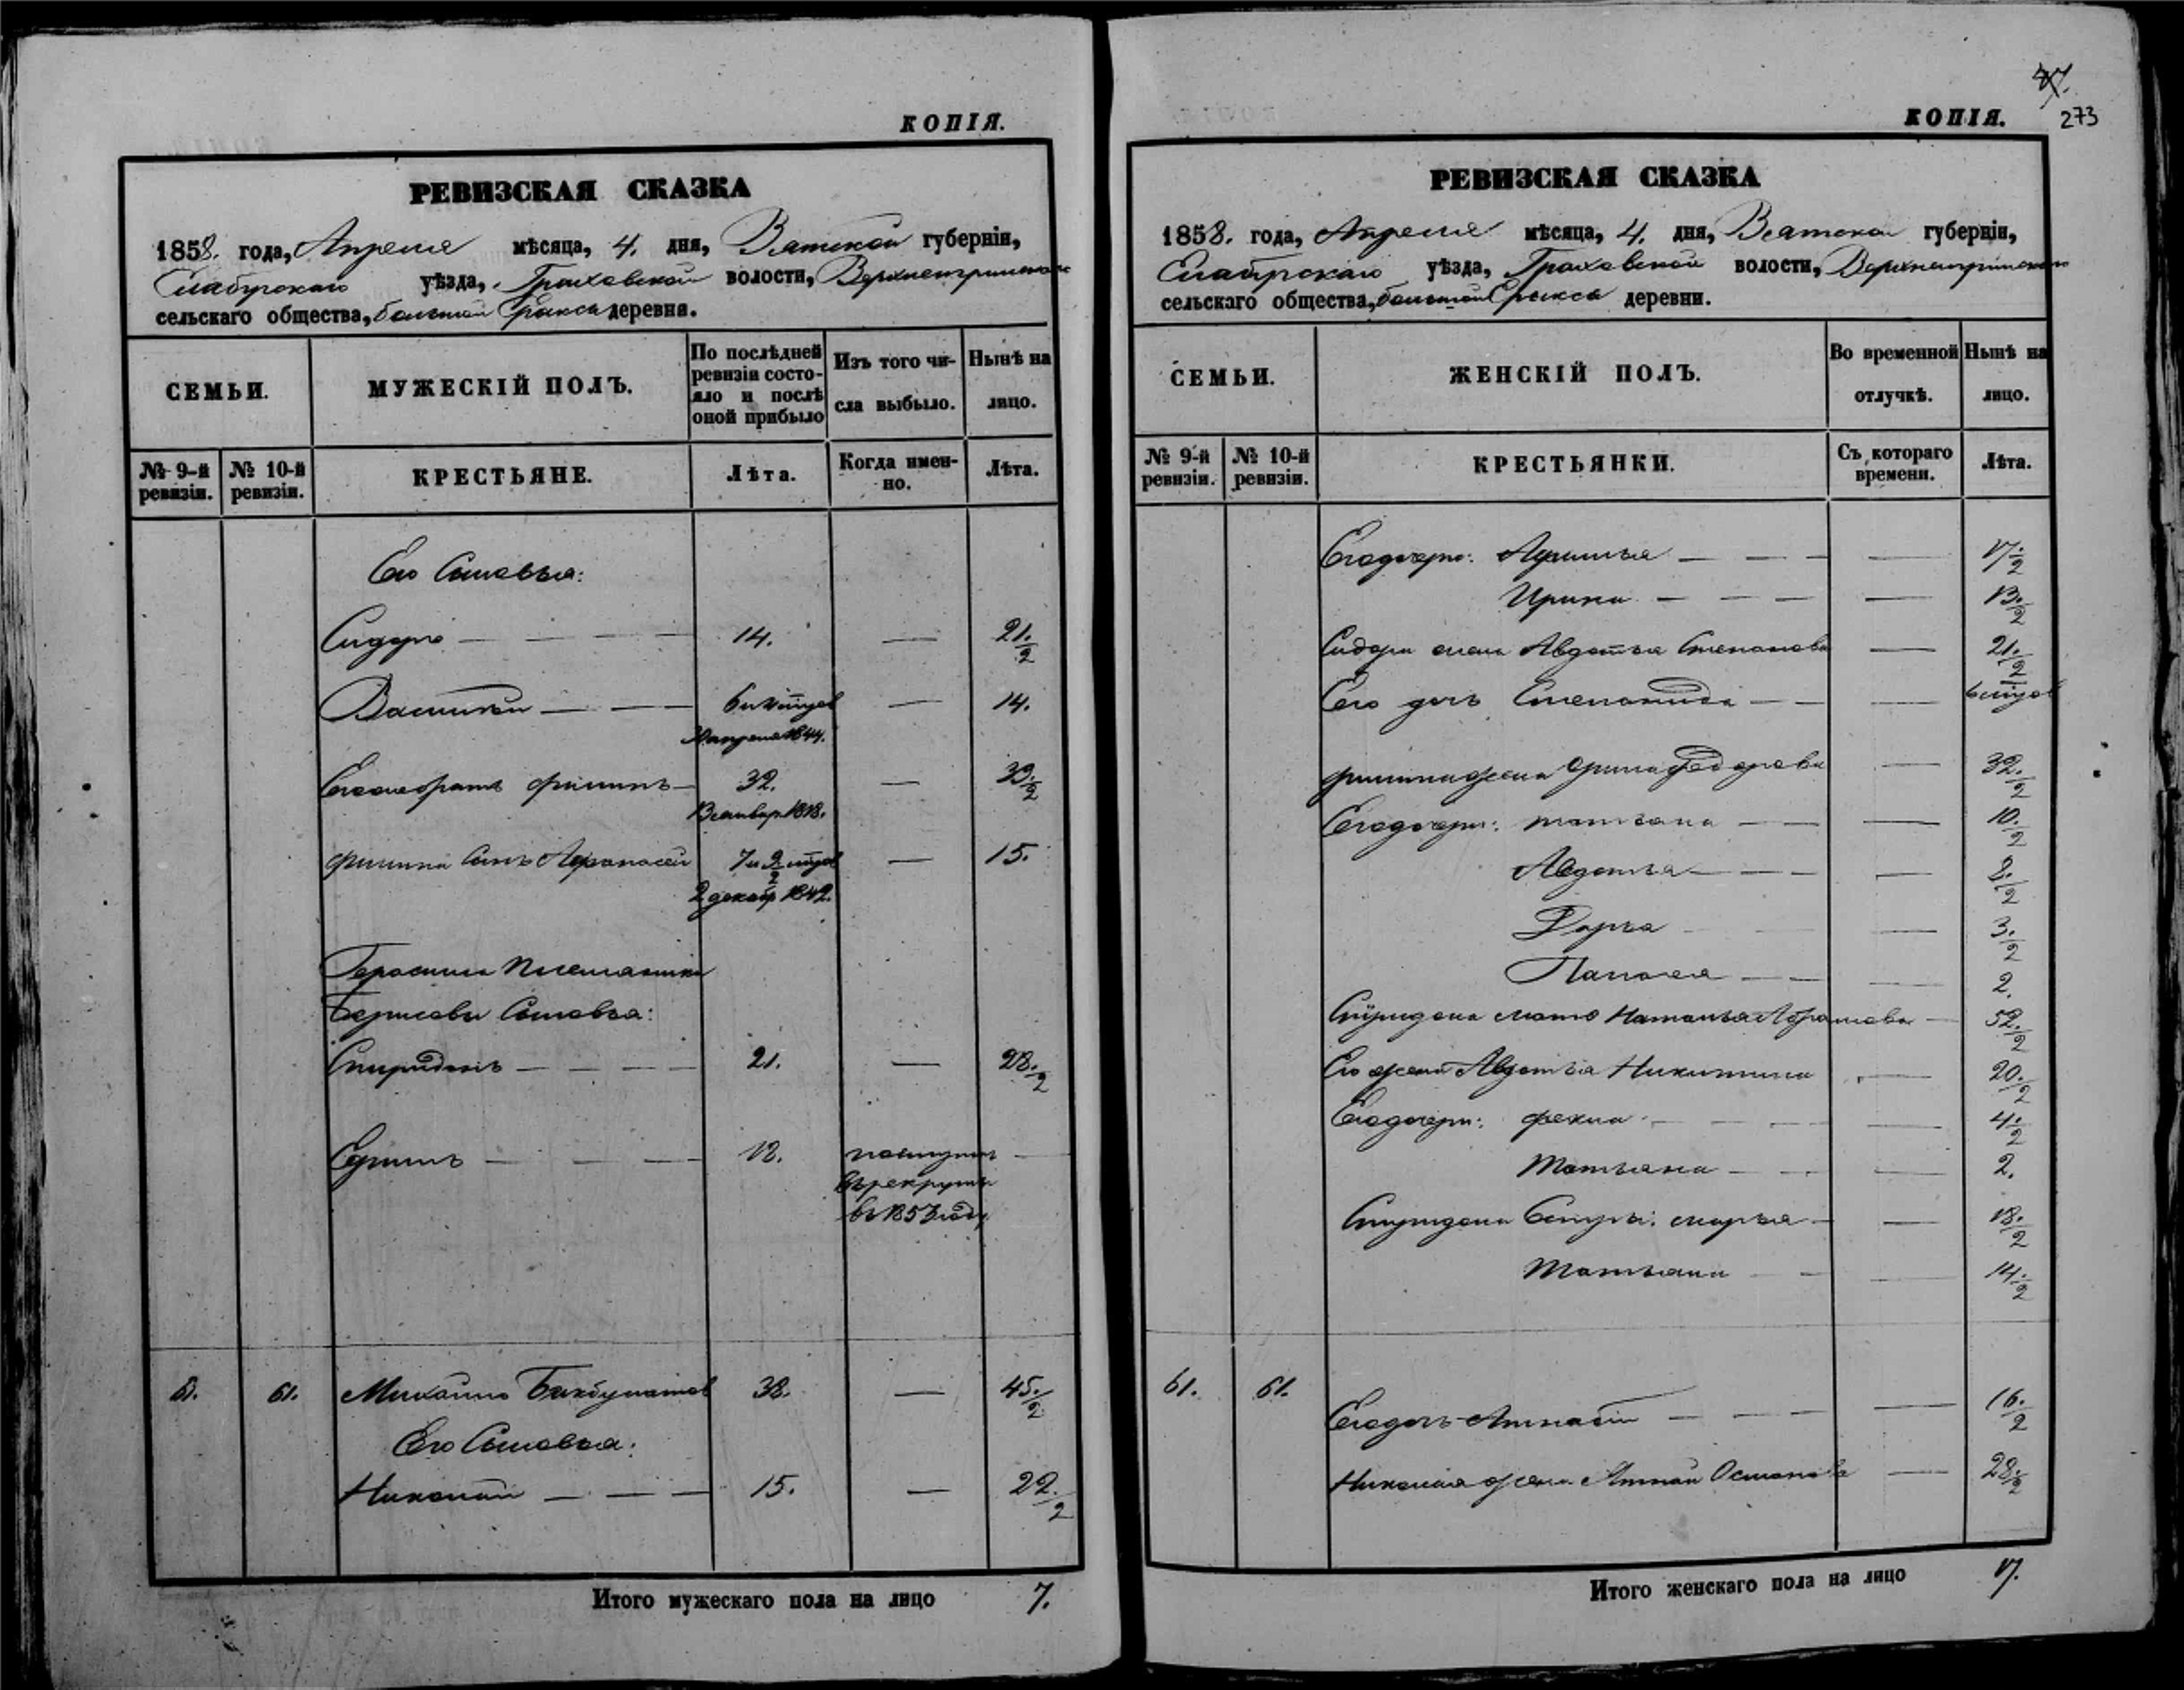 КОПІЯ.
РЕВИЗСКАЯ СКАЗКА
1858. года, Апреля мѣсяца, 4. дня, Вятской губерніи,
Елабугскаго уѣзда, Граховской волости,
сельскаго общества, большой Ерыксы деревни.
СЕМЬИ.
МУЖЕСКІЙ ПОЛЪ.
По послѣдней ревизіи состояло и послѣ оной прибыло
Изъ того числа выбыло.
Нынѣ на лицо.
№ 9-й ревизіи.
№ 10-й ревизіи.
КРЕСТЬЯНЕ.
Лѣта.
Когда именно.
Лѣта.
Его Сыновья:
Сидоръ — — — — 14. — 21. 1/2
Василій — — — —  — 14.
Филипъ — 32. —
Филипа Сынъ Афанасей — 15.
2 декабр 1842.
Герасима Племянника
Борисова Сыновья:
Спиридонъ — — — — 21. — 28. 1/2
Ефимъ — — — 18. поступилъ —
въ рекруты
въ 1853 году
61. 61. Михайло Бикбулатов 38. — 45. 1/2
Его Сыновья:
Николай — — — 15. — 22. 1/2
Итого мужескаго пола на лицо 7.
КОПІЯ.
273
РЕВИЗСКАЯ СКАЗКА
1858. года, Апреля мѣсяца, 4. дня, Вятской губерніи,
Елабугскаго уѣзда, Граховской волости,
сельскаго общества, большой Ерыксы деревни.
СЕМЬИ.
ЖЕНСКІЙ ПОЛЪ.
Во временной отлучкѣ.
Нынѣ на лицо.
№ 9-й ревизіи.
№ 10-й ревизіи.
КРЕСТЬЯНКИ.
Съ котораго времени.
Лѣта.
Его дочери: — — — — 17. 1/2
Ирина — — — — 13. 1/2
Сидора жена Авдотья Степанова — 21. 1/2
Его дочь Степанида — — —
Филипа жена Ирина Федорова — 32. 1/2
Его дочери: Татьяна — — — 10. 1/2
Авдотья — — — —
Дарья — — — 3. 1/2
— — — 2.
Спиридона мать Наталья Абрамова — 52. 1/2
Его жена Авдотья Никитина — 20. 1/2
Его дочери: Фекла — — — 4. 1/2
Татьяна — — — 2.
Спиридона Сестры: Марья — — 18. 1/2
Татьяна — — — 14. 1/2
61. 61.
Его дочь — — — — 16. 1/2
Николая жена — 28. 1/2
Итого женскаго пола на лицо 17.